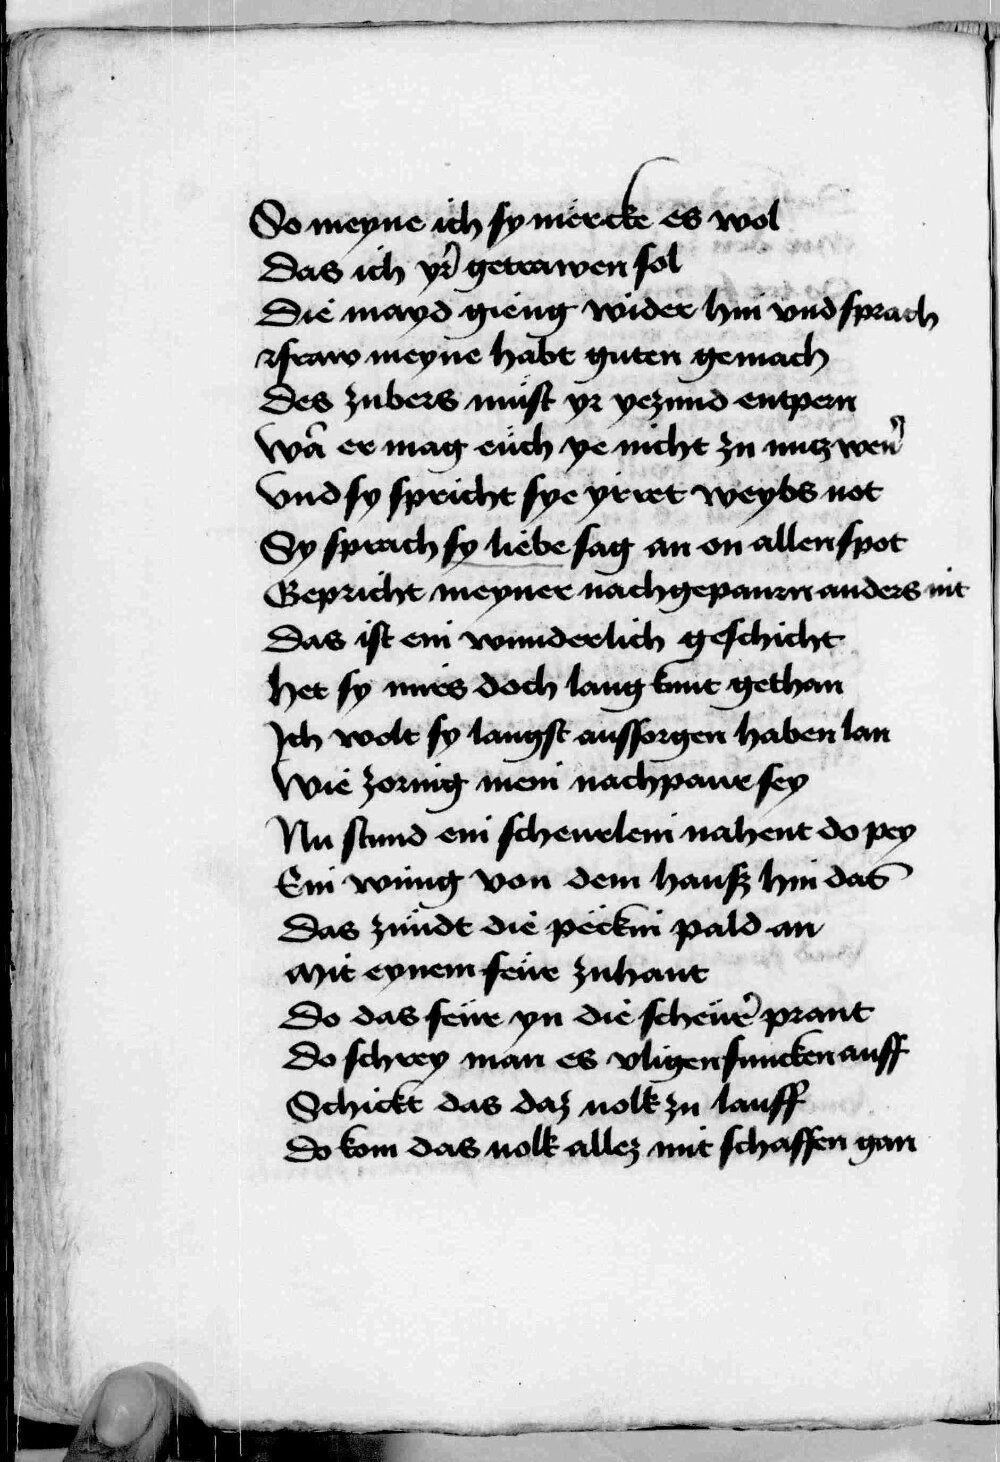 So meyne ich sy mercke es wol
Das ich yr̃ getrawen sol
Die mayd gieng wider hin vnd sprach
fraw meyne habt guten gemach
Des zubers müst yr yezund entpern
Wañ er mag eüch ye nicht zu nutz wern̄
Vnd sy spricht sye yrret weybs not
Sy sprach sy liebe sag an on allen spot
Gepricht meyner nachgepaurn anders nit
Das ist ein wunderlich geschicht
Het sy mirs doch lang kunt gethan
Ich wolt sy langst auss sorgen haben lan
Wie zornig mein nachpaur sey
Nu stund ein scheurlein nahent do pey
Ein winig von dem hausz hin das
Das zündt die peckin pald an
Mit eynem feür zuhant
Do das feür yn die scheür prant
Do schrey man es vligen funcken auff
Schickt das daz uolk zu lauff
Do kom das uolk allez mit schaffen gan